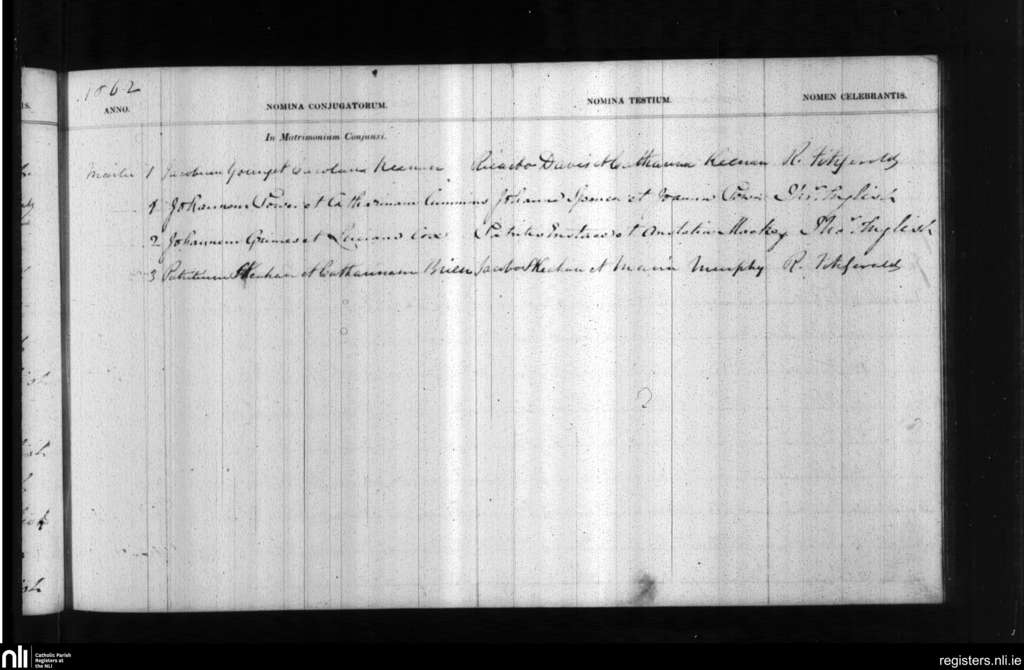 1862
IS.
ANNO.
NOMINA CONJUGATORUM.
NOMINA TESTIUM.
NOMEN CELEBRANTIS.
In Matrimonium Conjunxi.
1 Jacobum et Keenan Ricardo Davis et Catharina Keenan R. Fitzgerald
1 Johannem Power et Catharinam Cummins Johanne Spencer et Joanna Power Thos. English
2 Johannem Grimes et Cox Eustace et Anastatia Mackey Thos. English
3 Patritium Skehan et Catharinam Brien Jacobo Skehan et Maria Murphy R. Fitzgerald
nli
Catholic Parish
Registers at
the NLI
registers.nli.ie